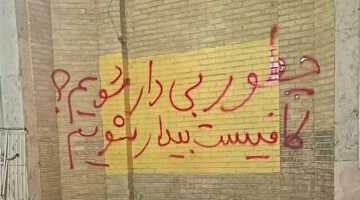 چطور بی دار شویم؟
کافیست بیدار شویم